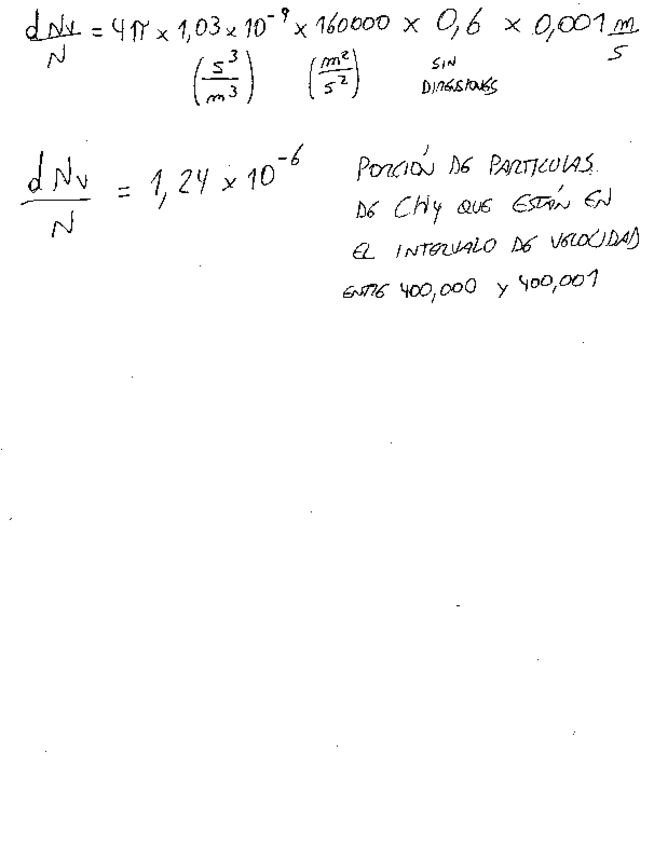 dNv/N = 4π × 1,03 × 10^-9 × 160000 × 0,6 × 0,001 m/s
(s^3/m^3) (m^2/s^2) SIN DIMENSIONES
dNv/N = 1,24 × 10^-6
PORCIÓN DE PARTICULAS
DE CH4 QUE ESTÁN EN
EL INTERVALO DE VELOCIDAD
ENTRE 400,000 y 400,001